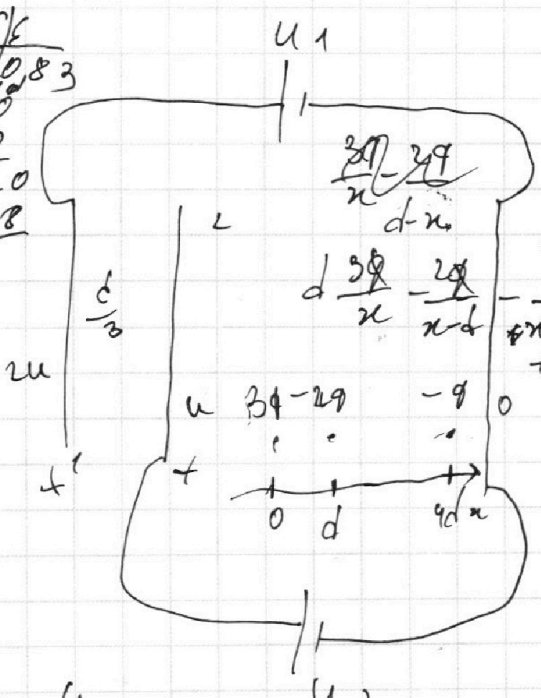 U 1
83
0
8
3q/x - 2q/d-x
2
d/3
d 3q/x - 2q/x-d -
2U
U 3q -2q -q 0
+ +
0 d 4d x